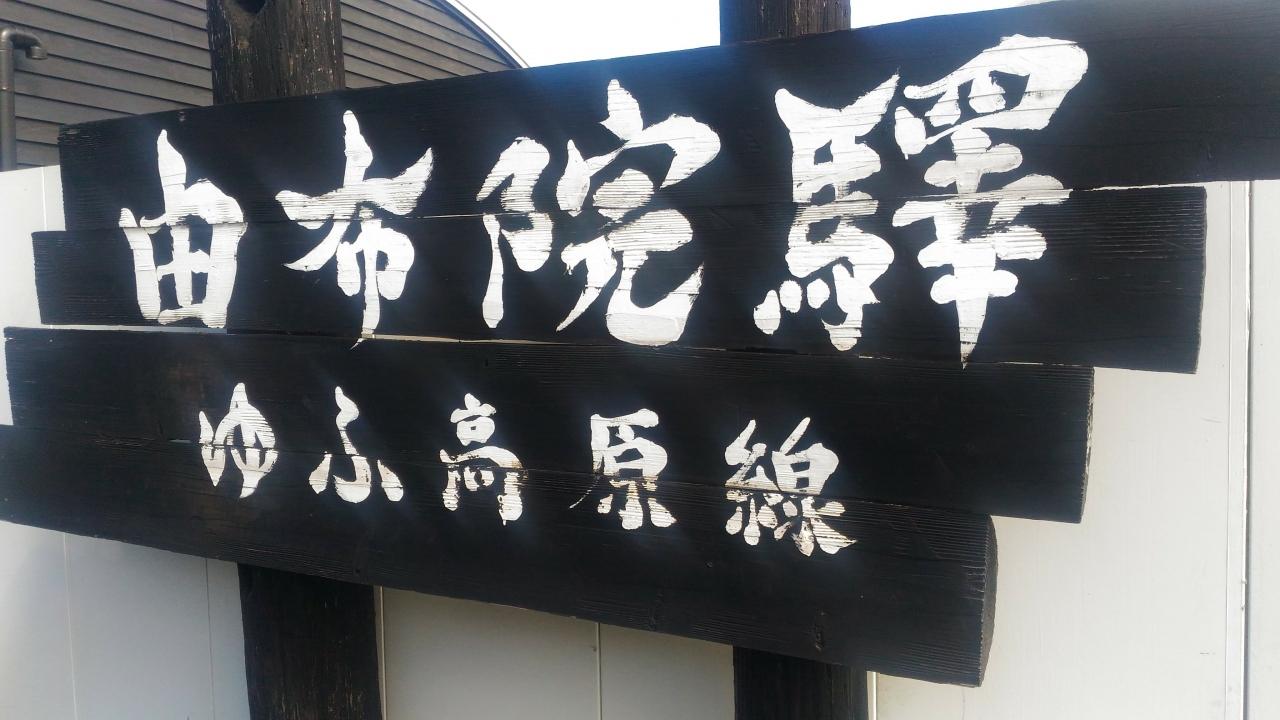 由布院驛
ゆふ高原線